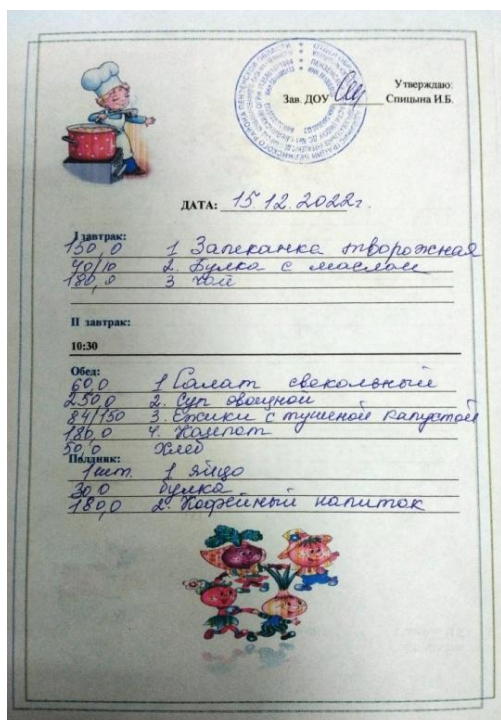 Утверждаю:
Зав. ДОУ Спицына И.Б.
ДАТА: 15.12.2022г.
I завтрак:
150,0 1 Запеканка творожная
40/10 2. Булка с маслом
180,0 3 чай
II завтрак:
10:30
Обед:
60,0 1 Салат свекольный
250,0 2. Суп овощной
84/150 3. Ежики с тушеной капустой
180,0 4. Компот
50,0 Хлеб
Полдник:
1 шт. 1 яйцо
30,0 булка
180,0 2. Кофейный напиток